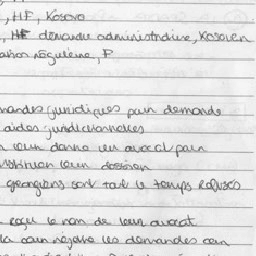 , HF, Kosovo
, HF demande administrative, Kosovar
régulière, F
juridiques pour demande
aides juridictionnelles
leur donne un avocat pour
leur dossier
georgiens sont tout le temps refusés
reçu le nom de leur avocat
la cour rejette les demandes car